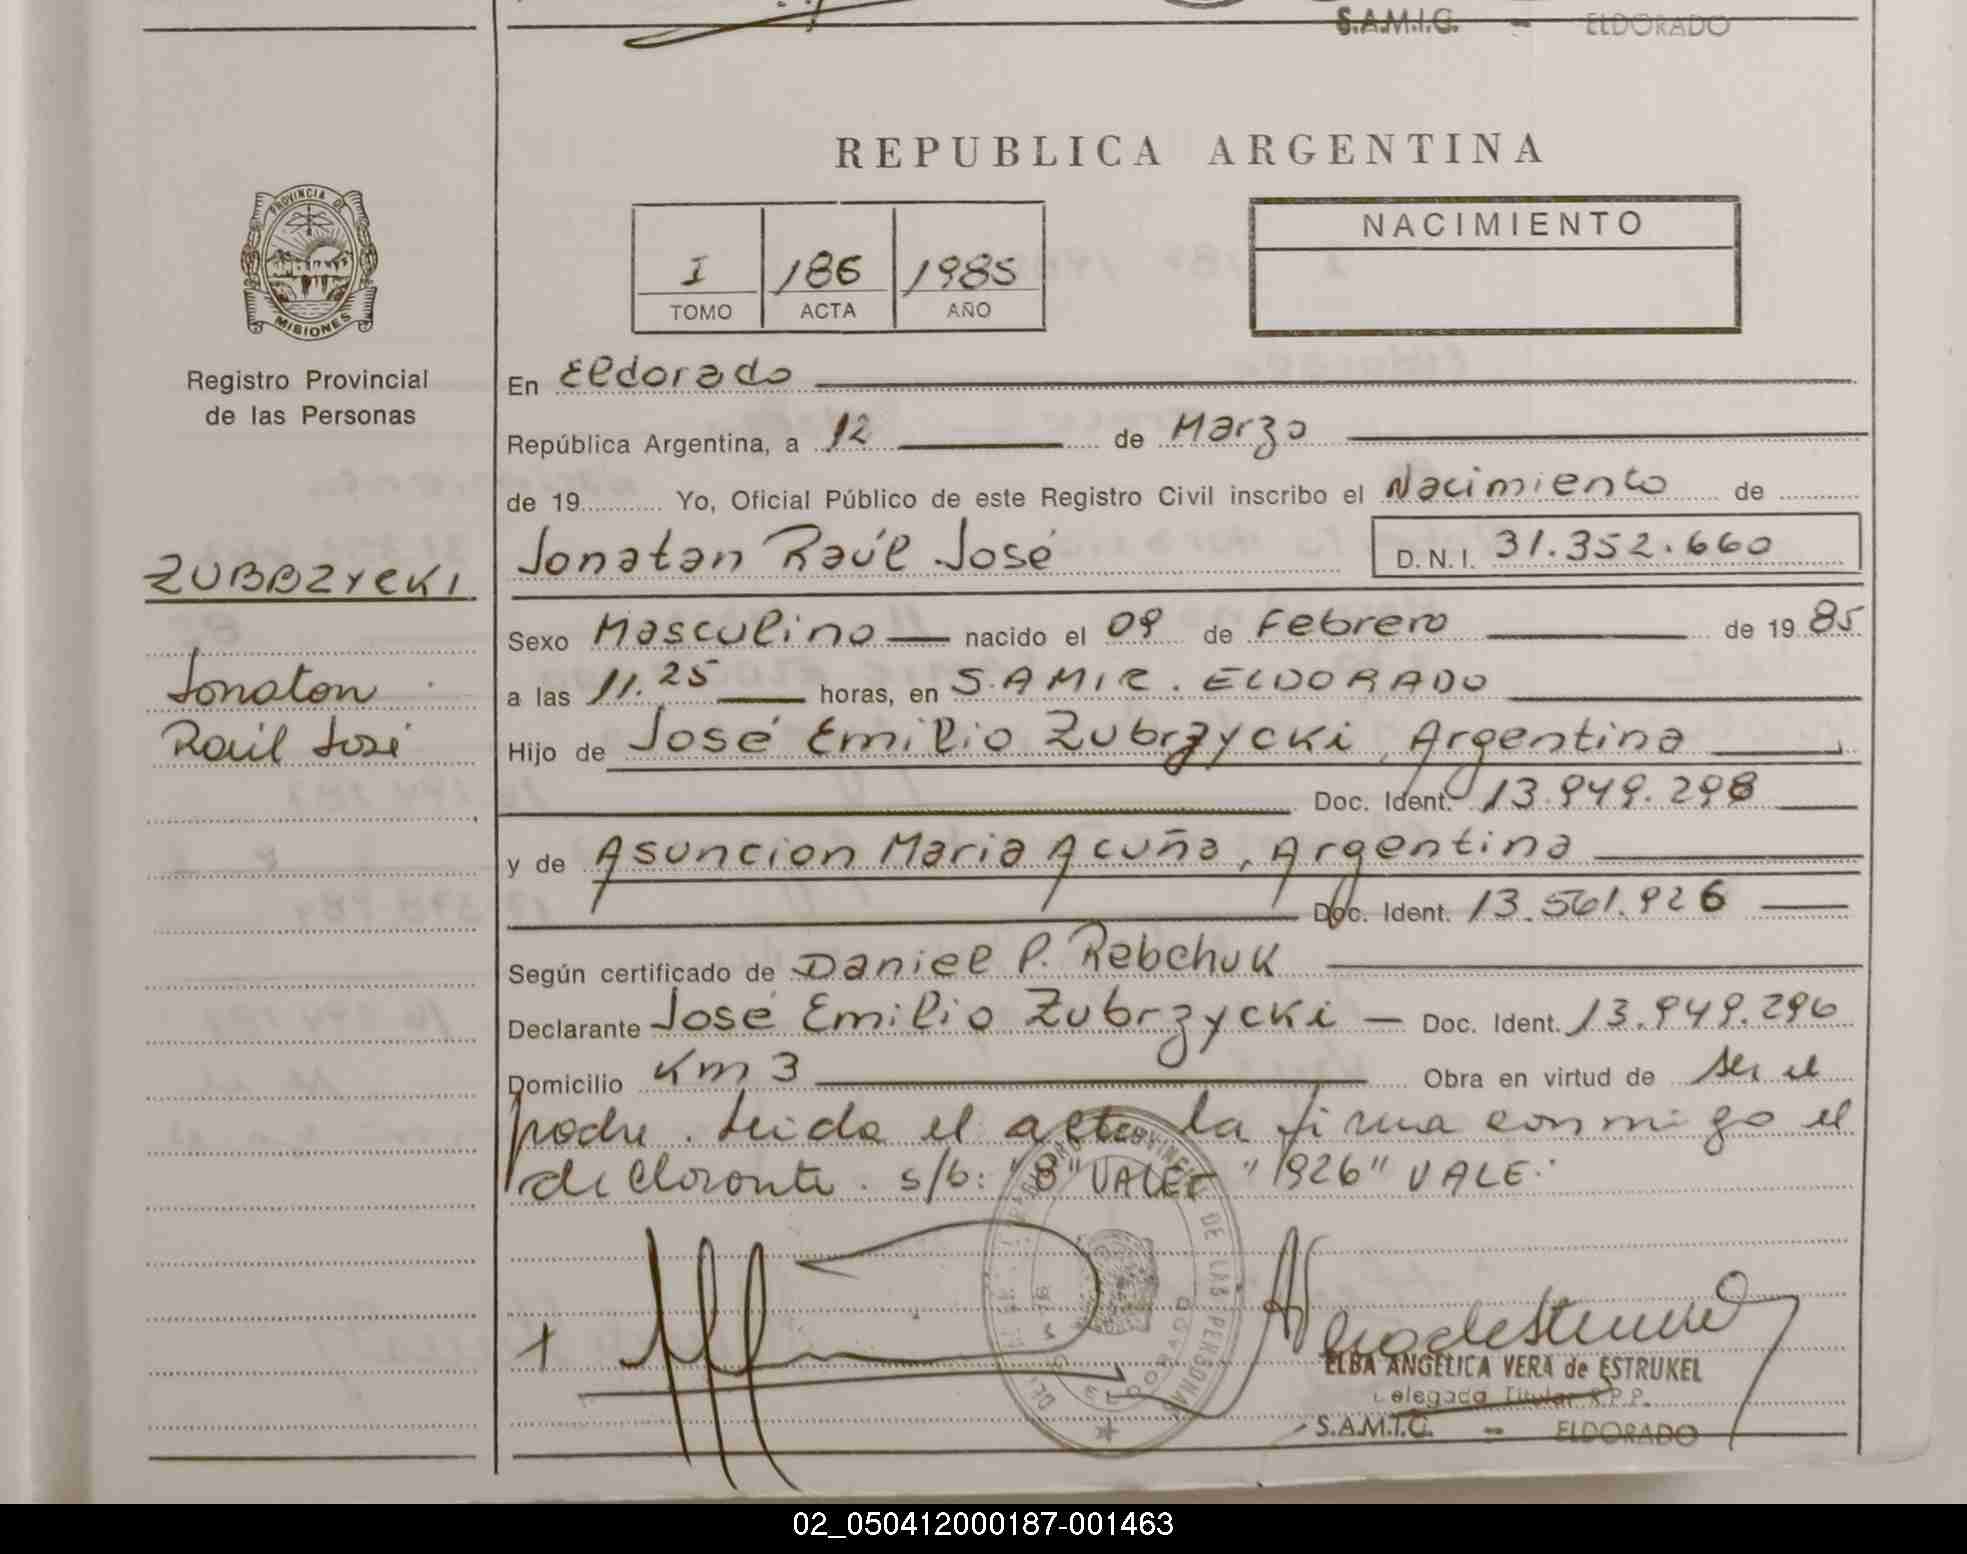 S.A.M.I.C. - ELDORADO
REPUBLICA ARGENTINA
PROVINCIA DE
MISIONES
Registro Provincial
de las Personas
I 186 1985
TOMO ACTA AÑO
NACIMIENTO
En Eldorado
República Argentina, a 12 de Marzo
de 19 Yo, Oficial Público de este Registro Civil inscribo el Nacimiento de
ZUBRZYCKI
Jonatan Raúl José
Jonatan Raúl José D.N.I. 31.352.660
Sexo Masculino nacido el 09 de Febrero de 1985
a las 11.25 horas, en S.AMIC. ELDORADO
Hijo de José Emilio Zubrzycki, Argentina
Doc. Ident. 13.949.298
y de Asuncion Maria Acuña, Argentina
Doc. Ident. 13.561.926
Según certificado de Daniel P. Rebchuk
Declarante José Emilio Zubrzycki - Doc. Ident. 13.949.296
Domicilio Km 3 Obra en virtud de ser el
padre. Leida el acta la firma conmigo el
declarante. s/b: "8" VALE "1926" VALE.
ELBA ANGELICA VERA de ESTRUKEL
Delegada Titular R.P.P.
S.A.M.I.C. - ELDORADO
02_050412000187-001463